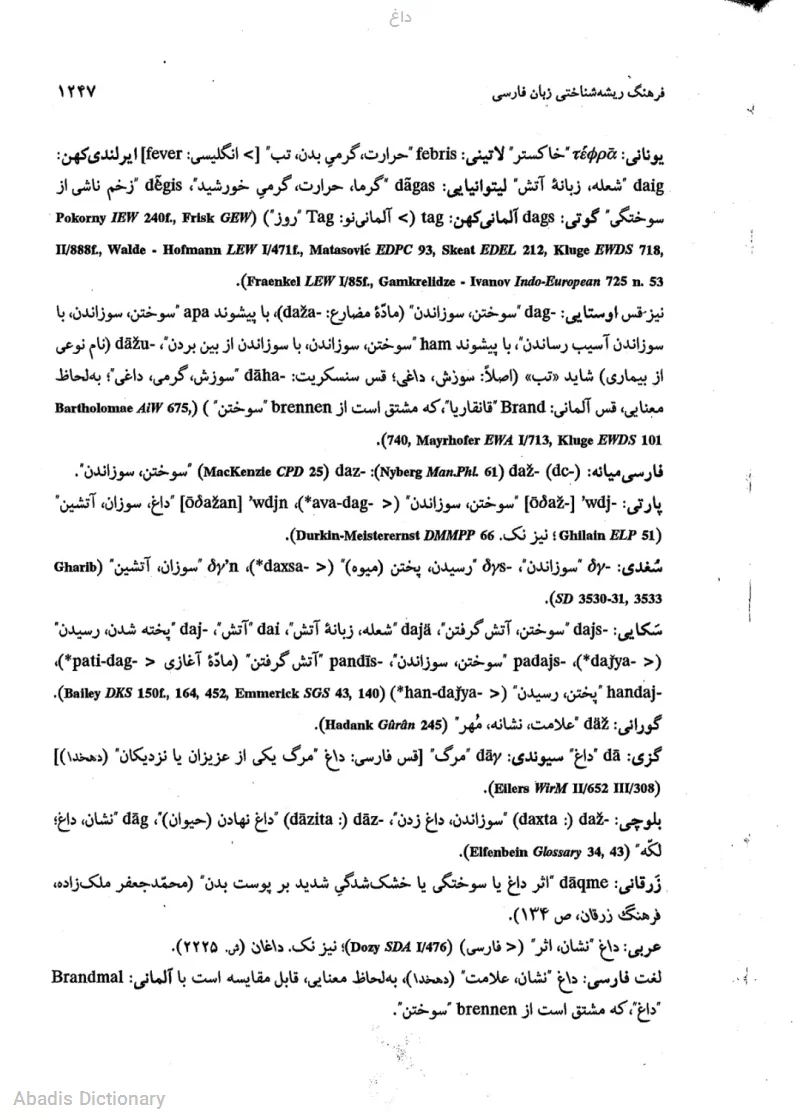 داغ
فرهنگ ریشه‌شناختی زبان فارسی
۱۲۴۷
یونانی: τέφρᾱ "خاکستر" لاتینی: febris "حرارت، گرمیِ بدن، تب" [> انگلیسی: fever] ایرلندی‌کهن:
daig "شعله، زبانۀ آتش" لیتوانیایی: dãgas "گرما، حرارت، گرمیِ خورشید"، dẽgis "زخم ناشی از
سوختگی" گوتی: dags آلمانی‌کهن: tag (> آلمانی‌نو: Tag "روز") (Pokorny IEW 240f., Frisk GEW
II/888f., Walde - Hofmann LEW I/471f., Matasović EDPC 93, Skeat EDEL 212, Kluge EWDS 718,
Fraenkel LEW I/85f., Gamkrelidze - Ivanov Indo-European 725 n. 53).
نیز قس اوستایی: dag- "سوختن، سوزاندن" (مادۀ مضارع: daža-)، با پیشوند apa "سوختن، سوزاندن، با
سوزاندن آسیب رساندن"، با پیشوند ham "سوختن، سوزاندن، با سوزاندن از بین بردن"، dāžu- (نام نوعی
از بیماری) شاید «تب» (اصلاً: سوزش، داغی؛ قس سنسکریت: dāha- "سوزش، گرمی، داغی"؛ به‌لحاظ
معنایی، قس آلمانی: Brand "قانقاریا"، که مشتق است از brennen "سوختن" ) (Bartholomae AiW 675,
740, Mayrhofer EWA I/713, Kluge EWDS 101).
فارسی‌میانه: daž- (dc-) (Nyberg Man.Phl. 61): daz- (MacKenzie CPD 25) "سوختن، سوزاندن".
پارتی: ’wdj- [ōδaž-] "سوختن، سوزاندن" (< *ava-dag-)، ’wdjn [ōδažan] "داغ، سوزان، آتشین"
(Ghilain ELP 51 ؛ نیز نک. Durkin-Meisterernst DMMPP 66).
سُغدی: δγ- "سوزاندن"، δγs- "رسیدن، پختن (میوه)" (< *daxsa-)، δγ’n "سوزان، آتشین" (Gharib
SD 3530-31, 3533).
سَکایی: dajs- "سوختن، آتش گرفتن"، dajä "شعله، زبانۀ آتش"، dai "آتش"، daj- "پخته شدن، رسیدن"
(< *daǰya-)، padajs- "سوختن، سوزاندن"، pandīs- "آتش گرفتن" (مادۀ آغازی < *pati-dag-)،
handaj- "پختن، رسیدن" (< *han-daǰya-) (Bailey DKS 150f., 164, 452, Emmerick SGS 43, 140).
گورانی: dāž "علامت، نشانه، مُهر" (Hadank Gûrân 245).
گزی: dā "داغ" سیوندی: dāy "مرگ" [قس فارسی: داغ "مرگ یکی از عزیزان یا نزدیکان" (دهخدا)]
(Eilers WirM II/652 III/308).
بلوچی: daž- (: daxta) "سوزاندن، داغ زدن"، dāz- (: dāzita) "داغ نهادن (حیوان)"، dāg "نشان، داغ؛
لکّه" (Elfenbein Glossary 34, 43).
زَرقانی: dāqme "اثر داغ یا سوختگی یا خشک‌شدگیِ شدید بر پوست بدن" (محمّدجعفر ملک‌زاده،
فرهنگ زرقان، ص ۱۳۴).
عربی: داغ "نشان، اثر" (< فارسی) (Dozy SDA I/476)؛ نیز نک. داغان (ش. ۲۲۲۵).
لغت فارسی: داغ "نشان، علامت" (دهخدا)، به‌لحاظ معنایی، قابل مقایسه است با آلمانی: Brandmal
"داغ"، که مشتق است از brennen "سوختن".
Abadis Dictionary